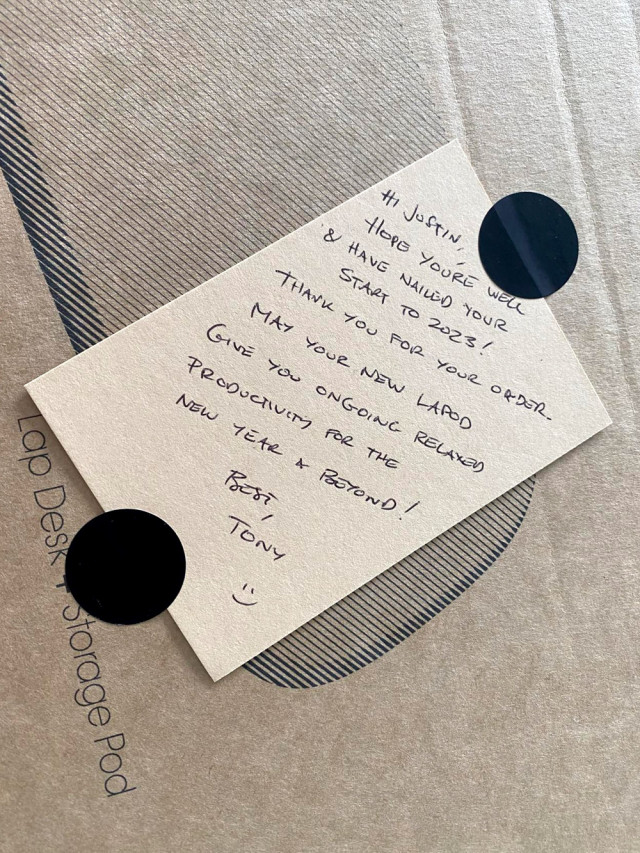 Hi Justin,
Hope you're well
& have nailed your
start to 2023!
Thank you for your order.
May your new Lapod
give you ongoing relaxed
productivity for the
new year & beyond!
Best,
Tony
:)
Lap Desk + Storage Pod